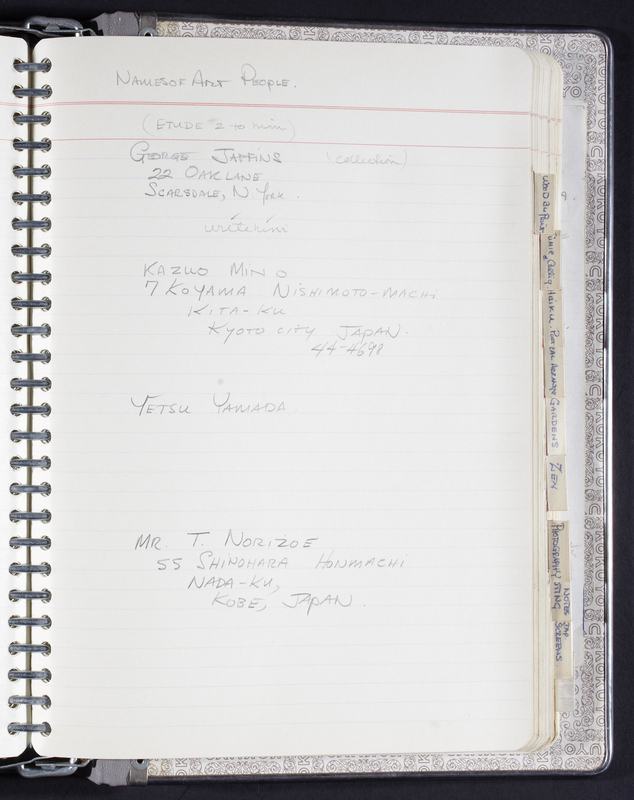 NAMES OF ART PEOPLE.
(ETUDE #2 to him)
GEORGE JAFFINS (collection)
22 OAK LANE
SCARSDALE, N. York.
write him
KAZUO MINO
7 KOYAMA NISHIMOTO-MACHI
KITA-KU
KYOTO CITY JAPAN.
44-4698
YETSU YAMADA
MR. T. NORIZOE
55 SHINOHARA HONMACHI
NADA-KU,
KOBE, JAPAN.
HAIKU.
GARDENS
ZEN
PHOTOGRAPHY
NOTES JAP
SCREENS
KOKUYO